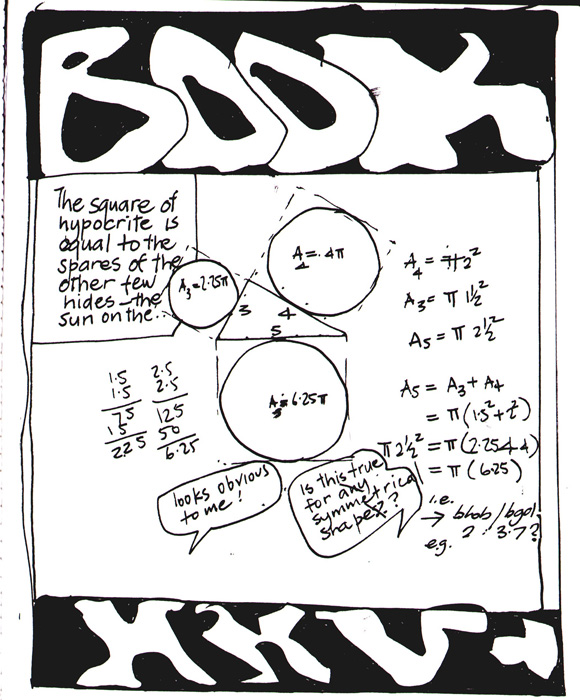 BOOK
The square of
hypocrite is
equal to the
spares of the
other few
hides—the
sun on the.
A₃=2.25π
A₄=.4π
3 4
5
A₅=6.25π
A₄ = π2²
A₃= π 1½²
A₅= π 2½²
1.5
1.5
75
15
225
2.5
2.5
125
50
6.25
A₅ = A₃ + A₄
= π(1.5²+2²)
π2½² = π(2.25+4)
= π(6.25)
looks obvious
to me!
Is this true
for any
symmetrical
shape?
i.e.
→ blob/
e.g. 2 : 3.7?
XXV